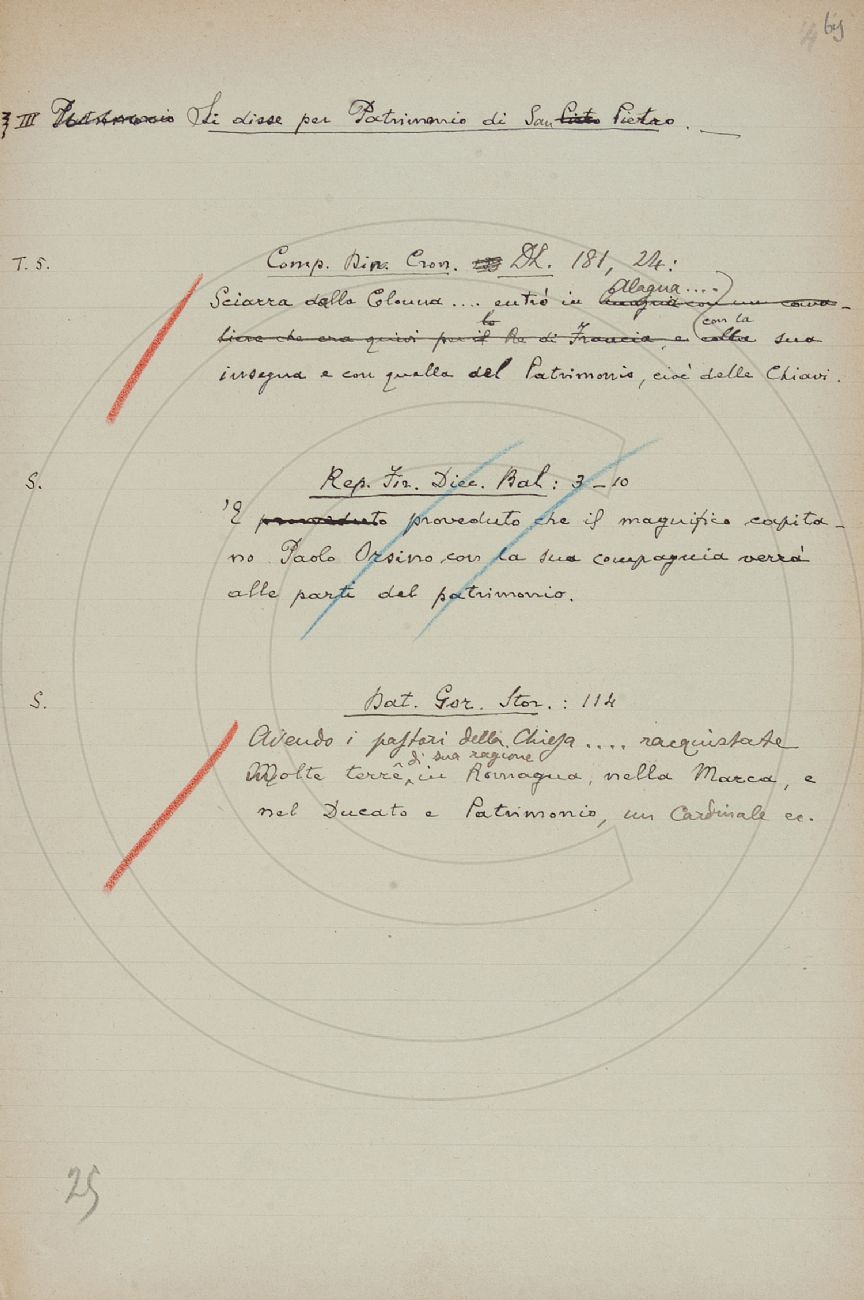 4 65
§ III Patrimonio Si disse per Patrimonio di San Pietro Pietro.
T. S.
Comp. Din. Cron. DL. 181, 24:
Alagna....
Sciarra della Colonna .... entrò in Anagna con un cava-
lo con la
liere che era quivi per il Re di Francia, e colla sua
insegna e con quella del Patrimonio, cioè delle Chiavi.
S.
Rep. Fir. Diec. Bal: 3-10
'E proveduto proveduto che il magnifico capita-
no Paolo Orsino con la sua compagnia verrà
alle parti del patrimonio.
S.
Dat. Gor. Stor.: 114
Avendo i pastori della Chiesa .... racquistate
di sua ragione
Molte terre in Romagna, nella Marca, e
nel Ducato e Patrimonio, un Cardinale ec.
25